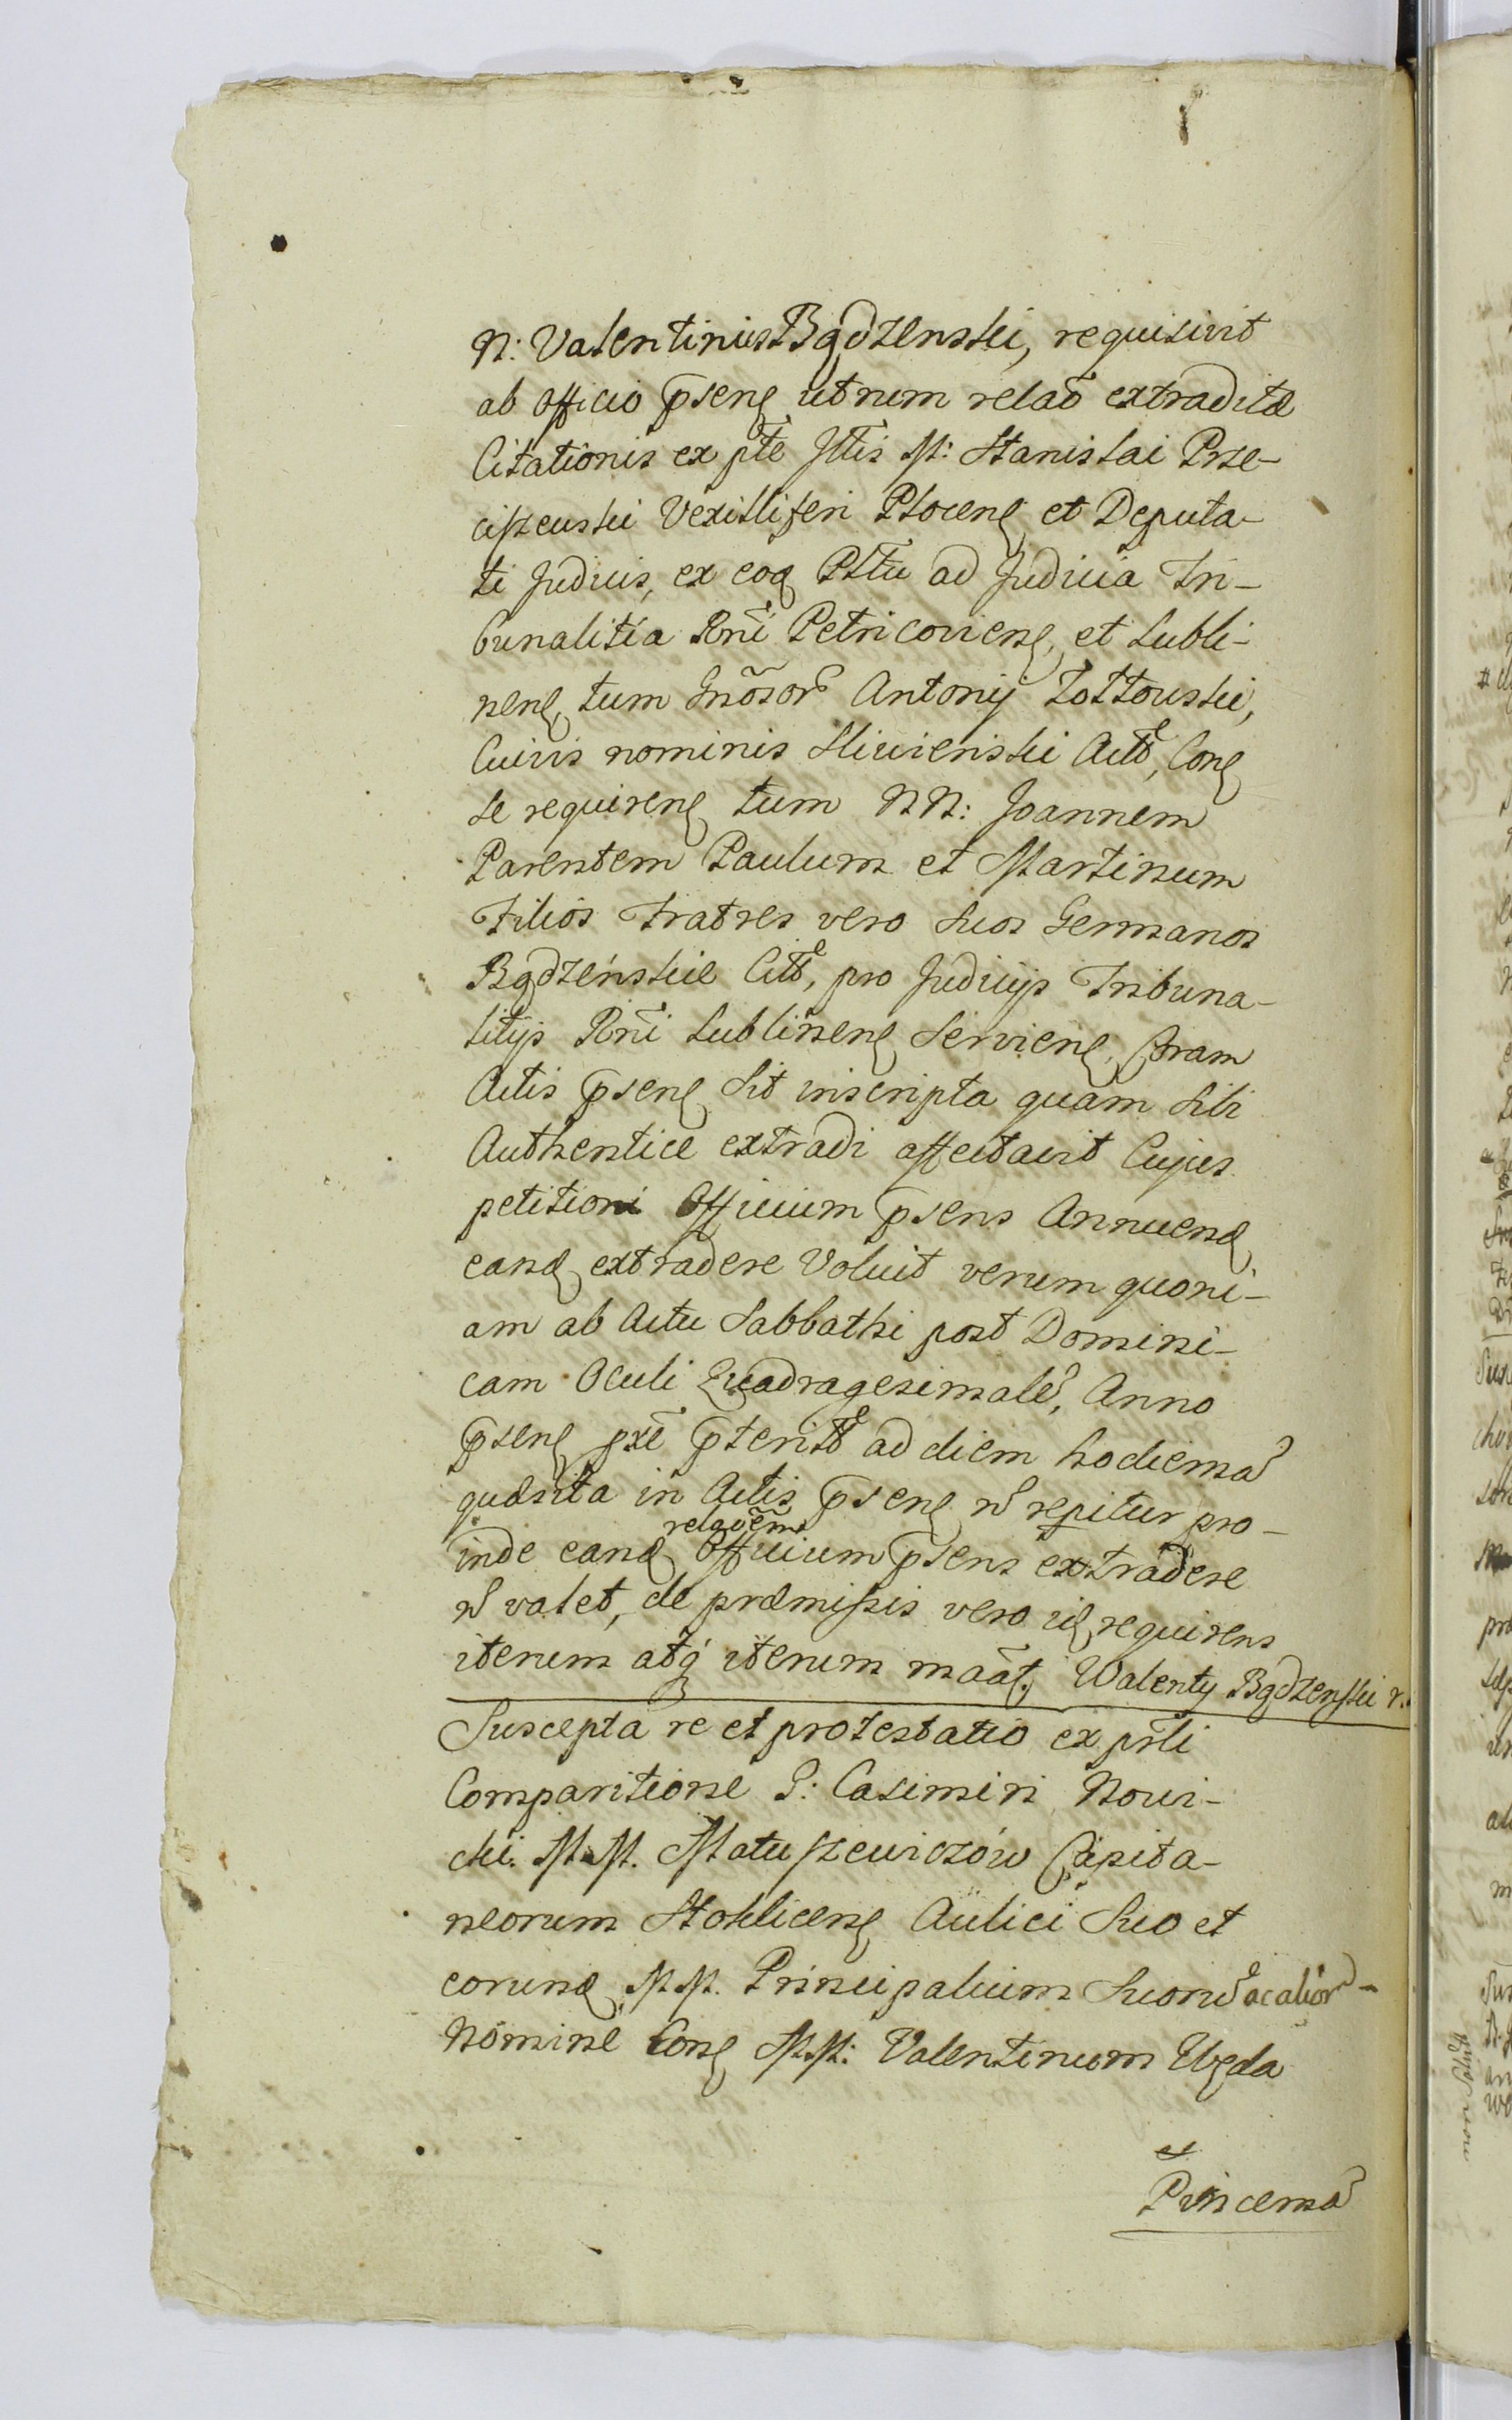 N: Valentinus Bądzenski, requisivit
ab officio p̄senʒ utrum relaõ extraditæ
Citationis ex pt̄e Jłłis M: Stanislai Prze-
ciszewski Vexilliferi Plocenʒ et Deputa-
ti Judicis, ex eoq Płłtu ad Judicia Tri-
bunalitia Rn̄i Petricovienʒ, et Lubli-
nenʒ, tum Gn̄osor̃ Antonij Zołtowski,
Cuivis nominis Sliwienski Act̃, Conʒ
se requirenʒ tum NN: Joannem
Parentem Paulum et Martinum
Filios Fratres vero Suos Germanos
Bądzeńskie Cit̃, pro Judicijs Tribuna-
litijs Rn̄i Lublinenʒ Servienʒ, Coram
Actis p̄senʒ Sit inscripta quam Sibi
Authentice extradi affectavit Cujus
petitioni Officium p̄sens Annuend
eand extradere Voluit verum quoni-
am ab Actu Sabbathi post Domini-
cam Oculi Quadragesimalẽ, Anno
p̄senʒ px̄e p̄terit̃ ad diem hodiernã
quæsita in Actis p̄senʒ ñ repitur pro-
inde eand relaõem Officium p̄sens extradere
ñ valet, de præmissis vero iʒ requirens
iterum atq̃ iterum maāt. Walenty Bądzenski r.
Suscepta re et protestatio ex prłi
Comparitione G: Casimiri Nowi-
cki. M.M. Matuszewiczów Capita-
neorum Stoklicenʒ Aulici Suo et
corund M.M. Principalium Suorũ ac alior̃
Nomine Conʒ M.M: Valentinum Uzda
et
Pincernã